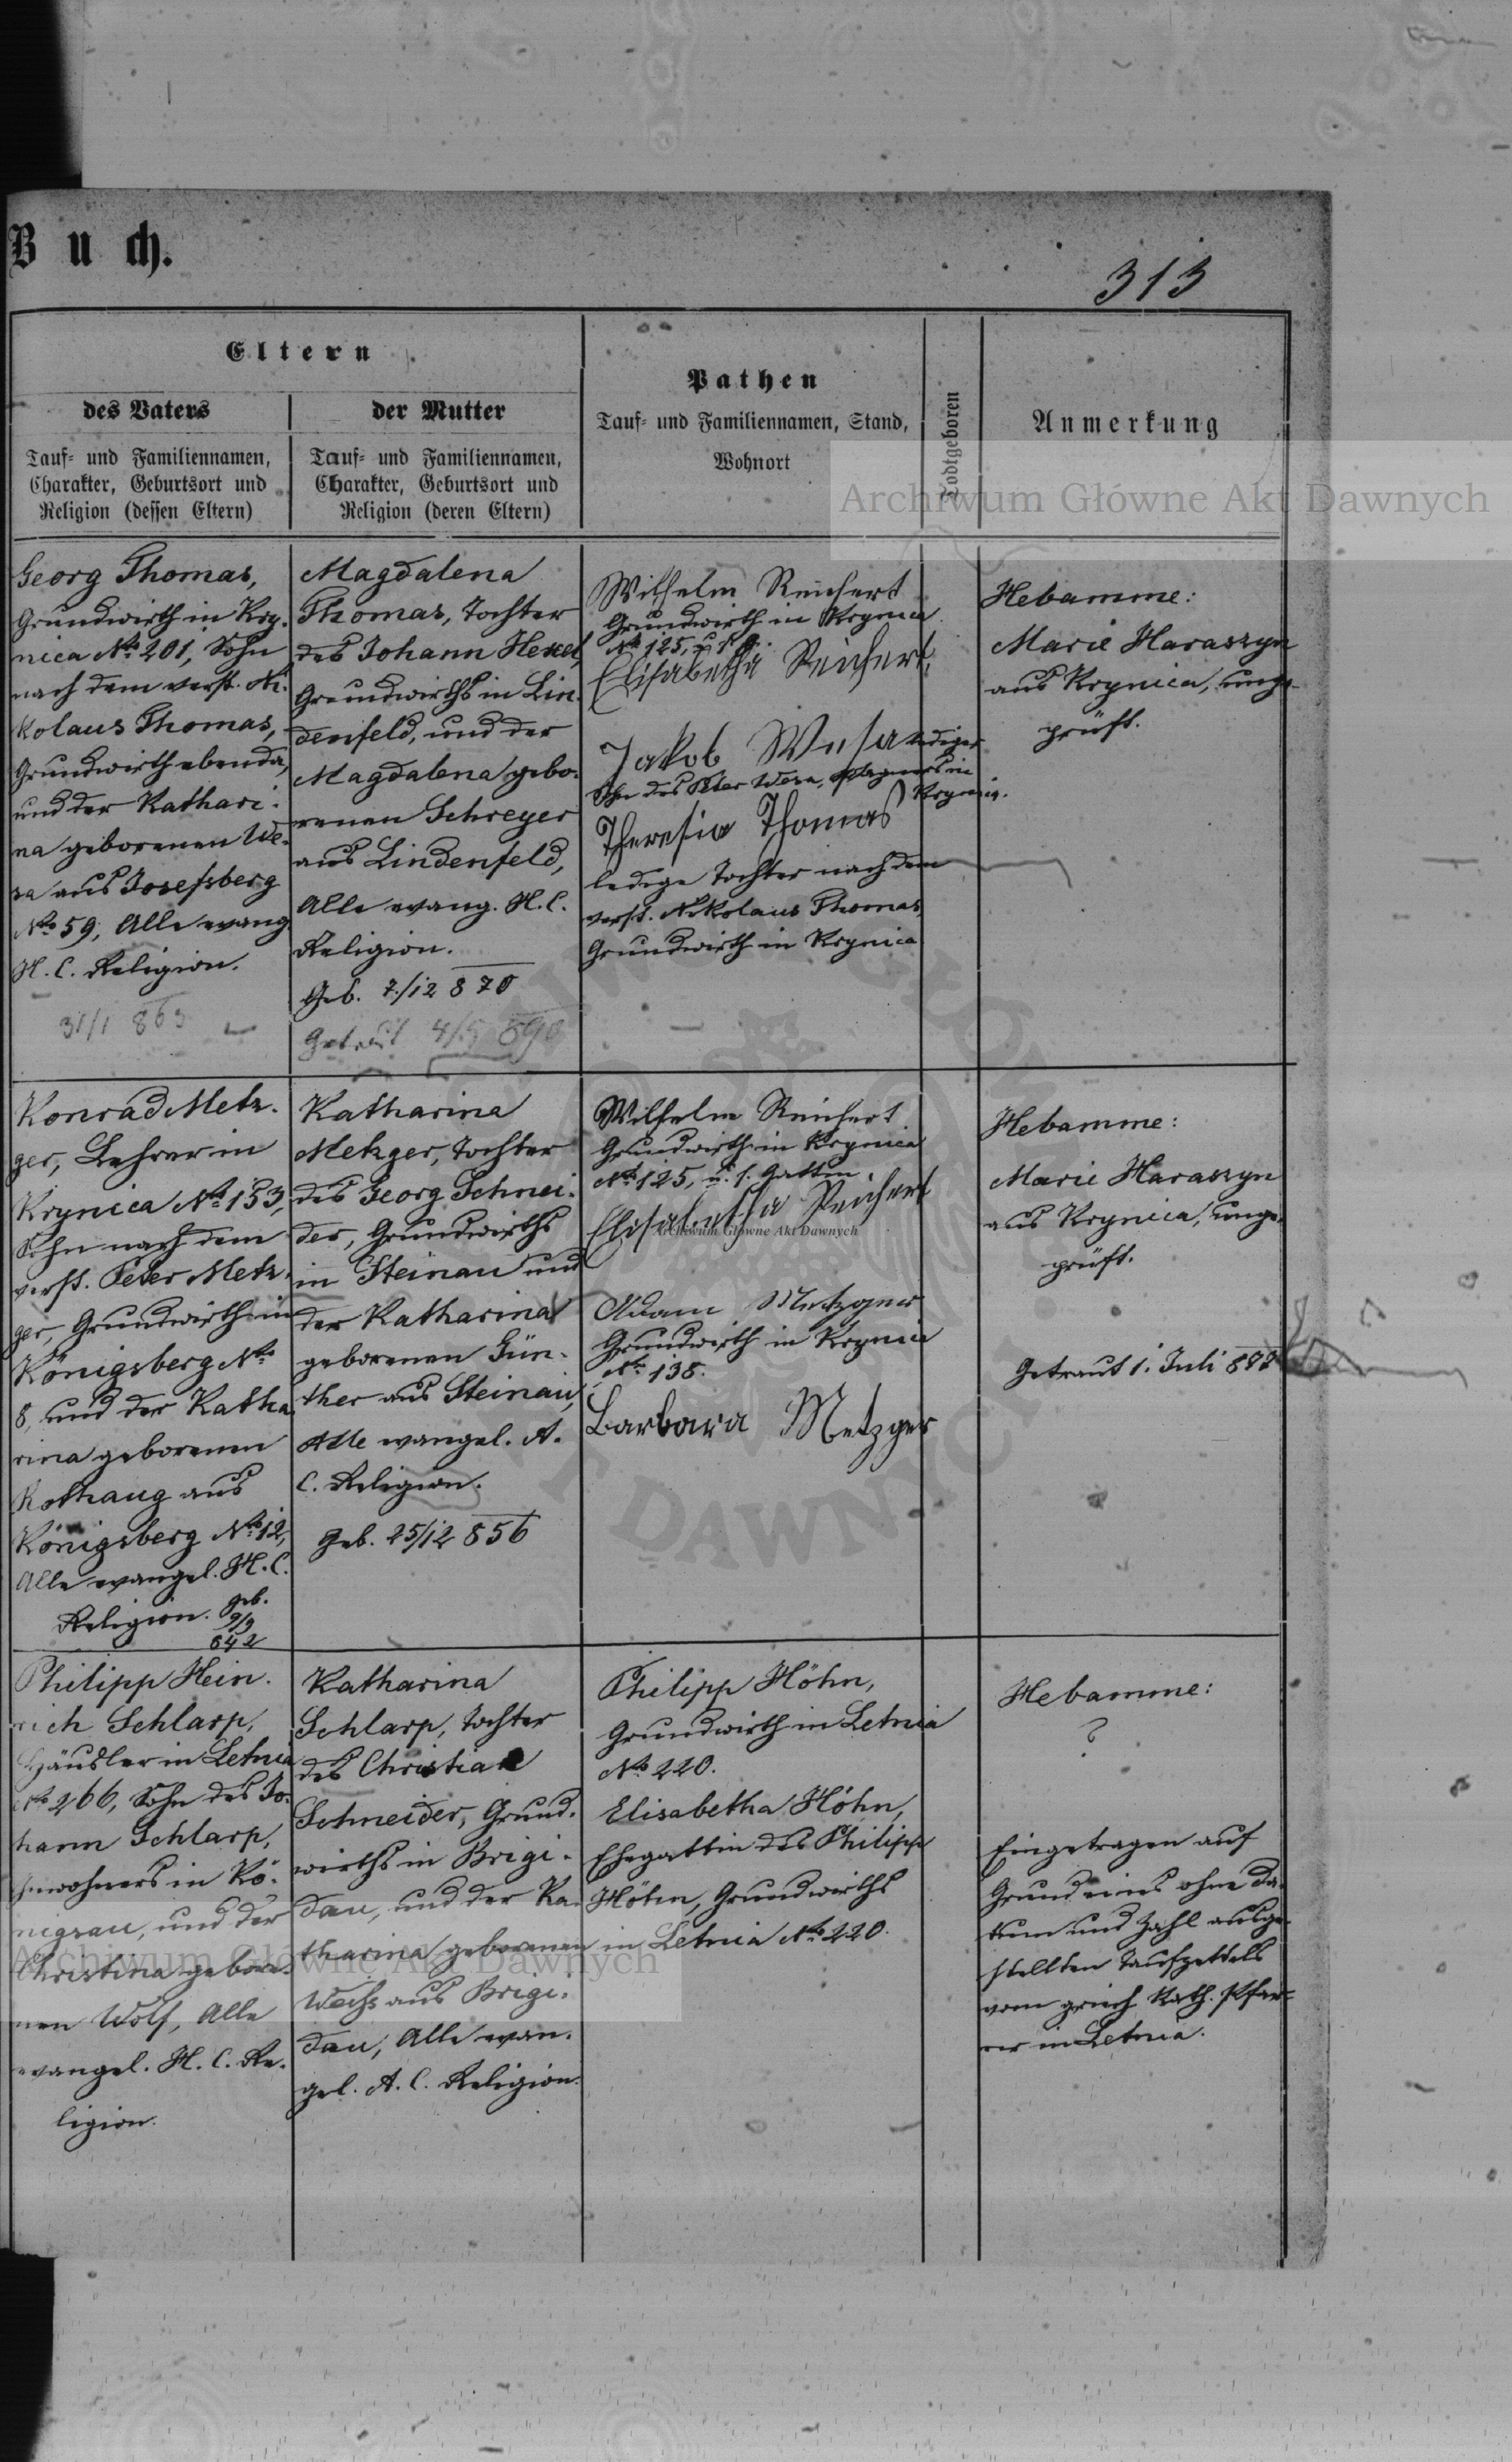 Buch.
313
Eltern
des Vaters
Tauf- und Familiennamen,
Charakter, Geburtsort und
Religion (dessen Eltern)
der Mutter
Tauf- und Familiennamen,
Charakter, Geburtsort und
Religion (deren Eltern)
Pathen
Tauf- und Familiennamen, Stand,
Wohnort
Todtgeboren
Anmerkung
Georg Thomas,
Grundwirth in Kry-
nica No 201, Sohn
nach dem verst. Ni-
kolaus Thomas,
Grundwirth ebenda,
und der Kathari-
na geborenen We-
sa aus Josefsberg
No 59, Alle evang.
H. C. Religion.
31/1 863
Magdalena
Thomas, Tochter
des Johann Hexel,
Grundwirths in Lin-
denfeld, und der
Magdalena gebo-
renen Schreyer
aus Lindenfeld,
Alle evang. H. C.
Religion.
Geb. 7/12 870
Getraut 4/5 890
Wilhelm Reichert
Grundwirth in Krynica
No 125, u. s. G.
Elisabetha Reichert,
Jakob Wesa lediger
Sohn des Peter Wesa, in
Krynica.
Theresia Thomas
ledige Tochter nach dem
verst. Nikolaus Thomas
Grundwirth in Krynica
Hebamme:
Marie Haraszyn
aus Krynica, unge-
prüft.
Konrad Metz-
ger, Lehrer in
Krynica No 153,
Sohn nach dem
verst. Peter Metz-
ger, Grundwirth in
Königsberg No
8, und der Katha-
rina geborenen
Rothaug aus
Königsberg No 12,
Alle evangel. H. C.
Religion. geb.
9/9
842
Katharina
Metzger, Tochter
des Georg Schnei-
der, Grundwirths
in Steinau und
der Katharina
geborenen Gün-
ther aus Steinau,
Alle evangel. A.
C. Religion.
geb. 25/12 856
Wilhelm Reichert
Grundwirth in Krynica
No 125, u. s. Gattin
Elisabetha Reichert
Adam Metzger
Grundwirth in Krynica
No 138.
Barbara Metzger
Hebamme:
Marie Haraszyn
aus Krynica, unge-
prüft.
Getraut 1. Juli
Philipp Hein-
rich Schlarp,
Häusler in Letnia
No 266, Sohn des Jo-
hann Schlarp,
Inwohners in Kö-
nigsau, und der
Christina gebore-
nen Wolf, Alle
evangel. H. C. Re-
ligion.
Katharina
Schlarp, Tochter
des Christian
Schneider, Grund-
wirths in Brigi-
dau, und der Ka-
tharina geborenen
Weihs aus Brigi-
dau, Alle evan-
gel. A. C. Religion.
Philipp Höhn,
Grundwirth in Letnia
No 220.
Elisabetha Höhn,
Ehegattin des Philipp
Höhn, Grundwirths
in Letnia No 220.
Hebamme:
?
Eingetragen auf
Grund eines ohne Da-
tum und Zahl ausge-
stellten Taufzettels
vom griech. kath. Pfar-
rer in Letnia.
Archiwum Główne Akt Dawnych
Archiwum Główne Akt Dawnych
Archiwum Główne Akt Dawnych